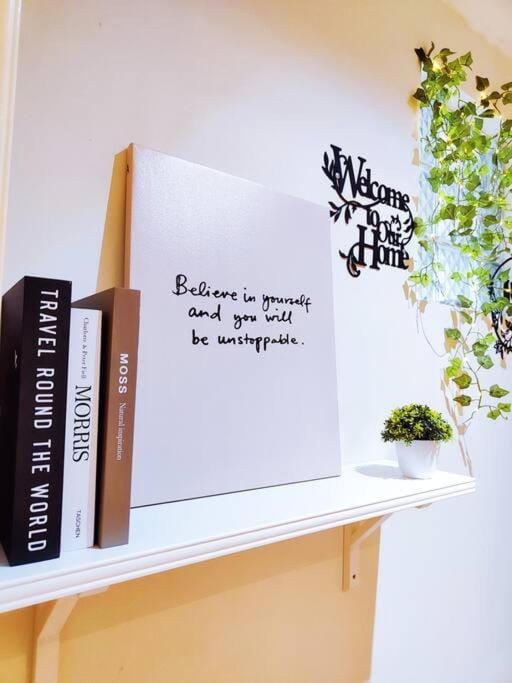 TRAVEL ROUND THE WORLD
Charlotte & Peter Fiell
MORRIS
TASCHEN
MOSS
Natural inspiration
Believe in yourself
and you will
be unstoppable.
Welcome
To Our
Home